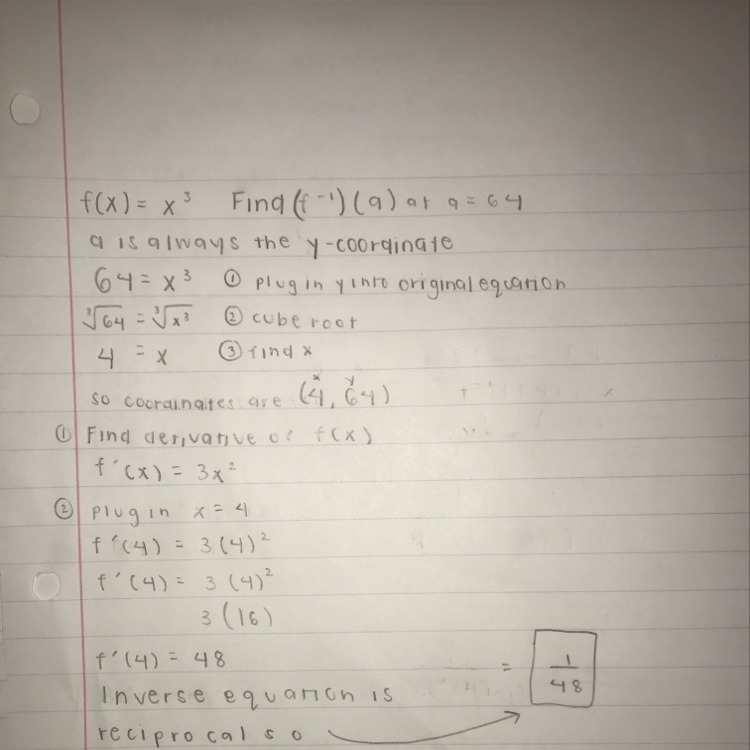 f(x) = x³ Find (f⁻¹)(a) at a = 64
a is always the y-coordinate
64 = x³ ① plug in y into original equation
∛64 = ∛x³ ② cube root
4 = x ③ find x
x y
so coordinates are (4, 64)
① Find derivative of f(x)
f'(x) = 3x²
② plug in x = 4
f'(4) = 3(4)²
f'(4) = 3(4)²
3(16)
f'(4) = 48
= 1/48
Inverse equation is
reciprocal so